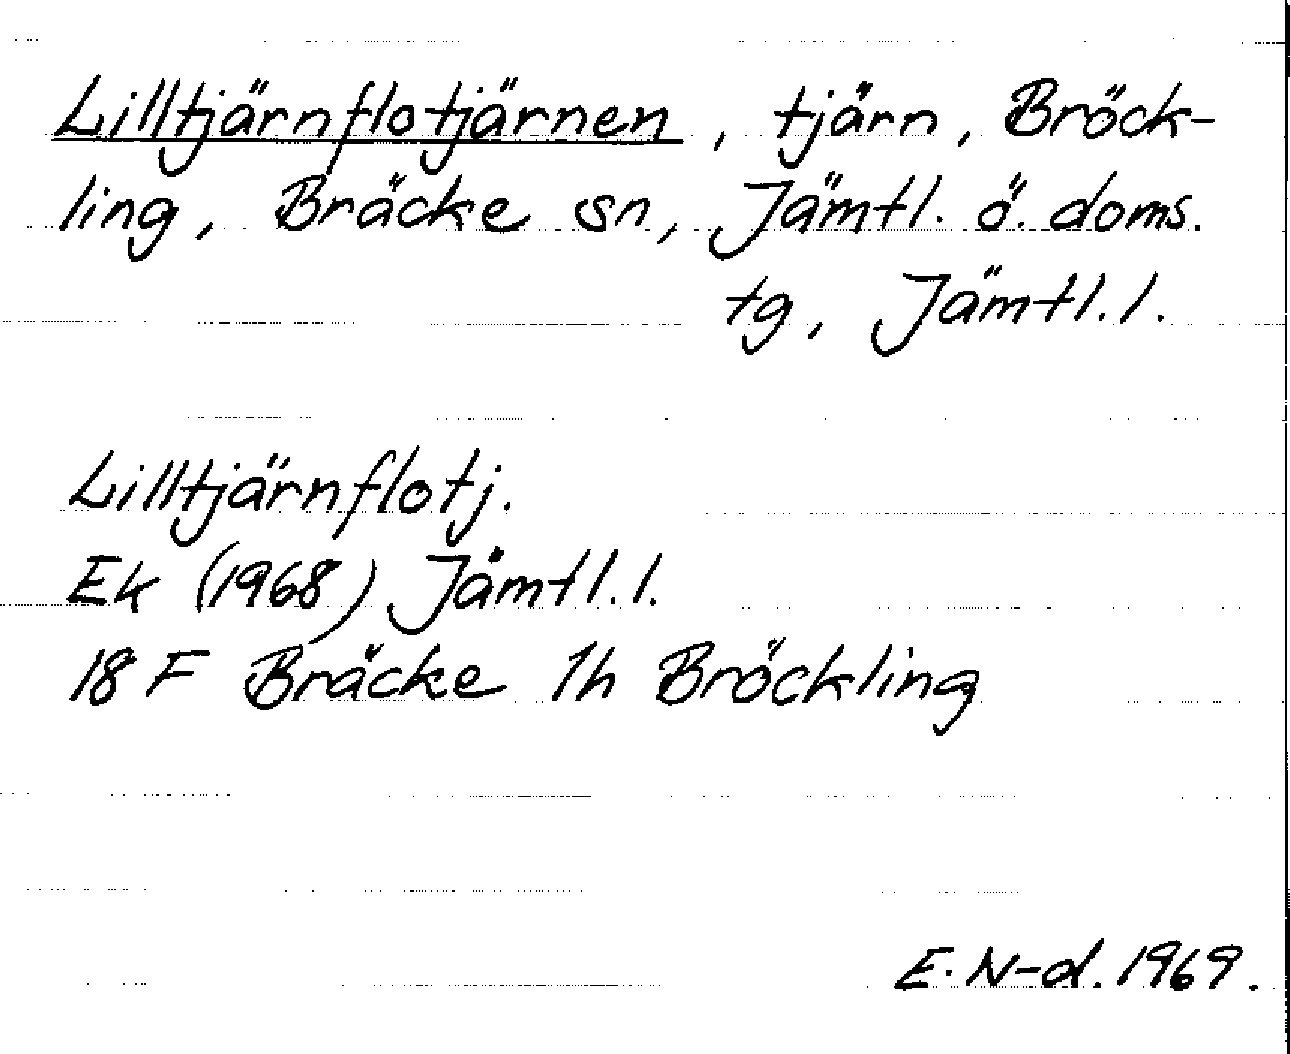 Lilltjärnflotjärnen, tjärn, Bröck-
ling, Bräcke sn, Jämtl. ö. doms.
tg, Jämtl. l.
Lilltjärnflotj.
Ek (1968) Jämtl. l.
18 F Bräcke 1h Bröckling
E. N-d. 1969.